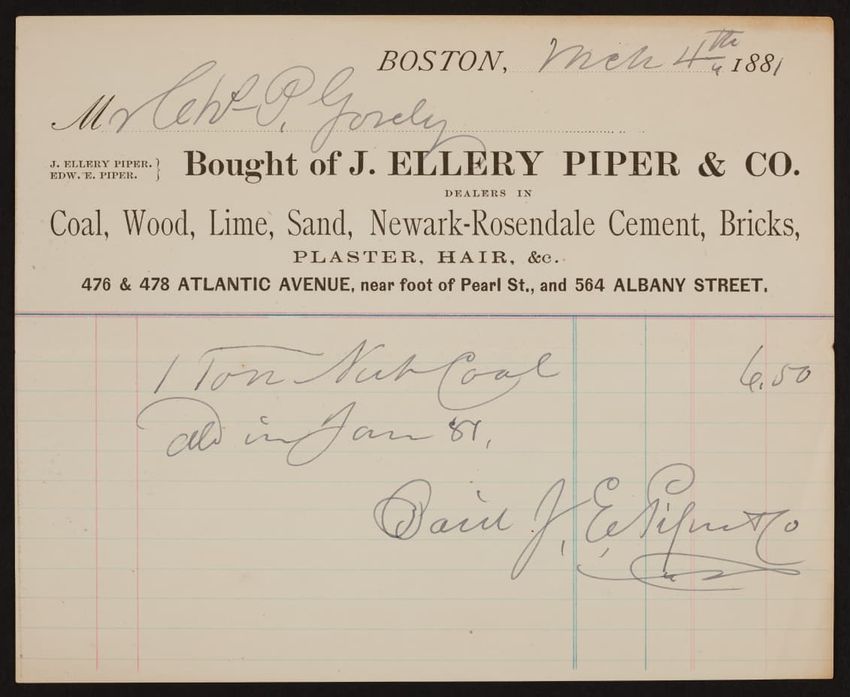 BOSTON, Mch 4th 1881
Mr P. Gorely
J. ELLERY PIPER.
EDW. E. PIPER.
Bought of J. ELLERY PIPER & CO.
DEALERS IN
Coal, Wood, Lime, Sand, Newark-Rosendale Cement, Bricks,
PLASTER, HAIR, &c.
476 & 478 ATLANTIC AVENUE, near foot of Pearl St., and 564 ALBANY STREET.
1 Ton Nut Coal 6.50
in Jan 81,
Paid J. E. Piper & Co